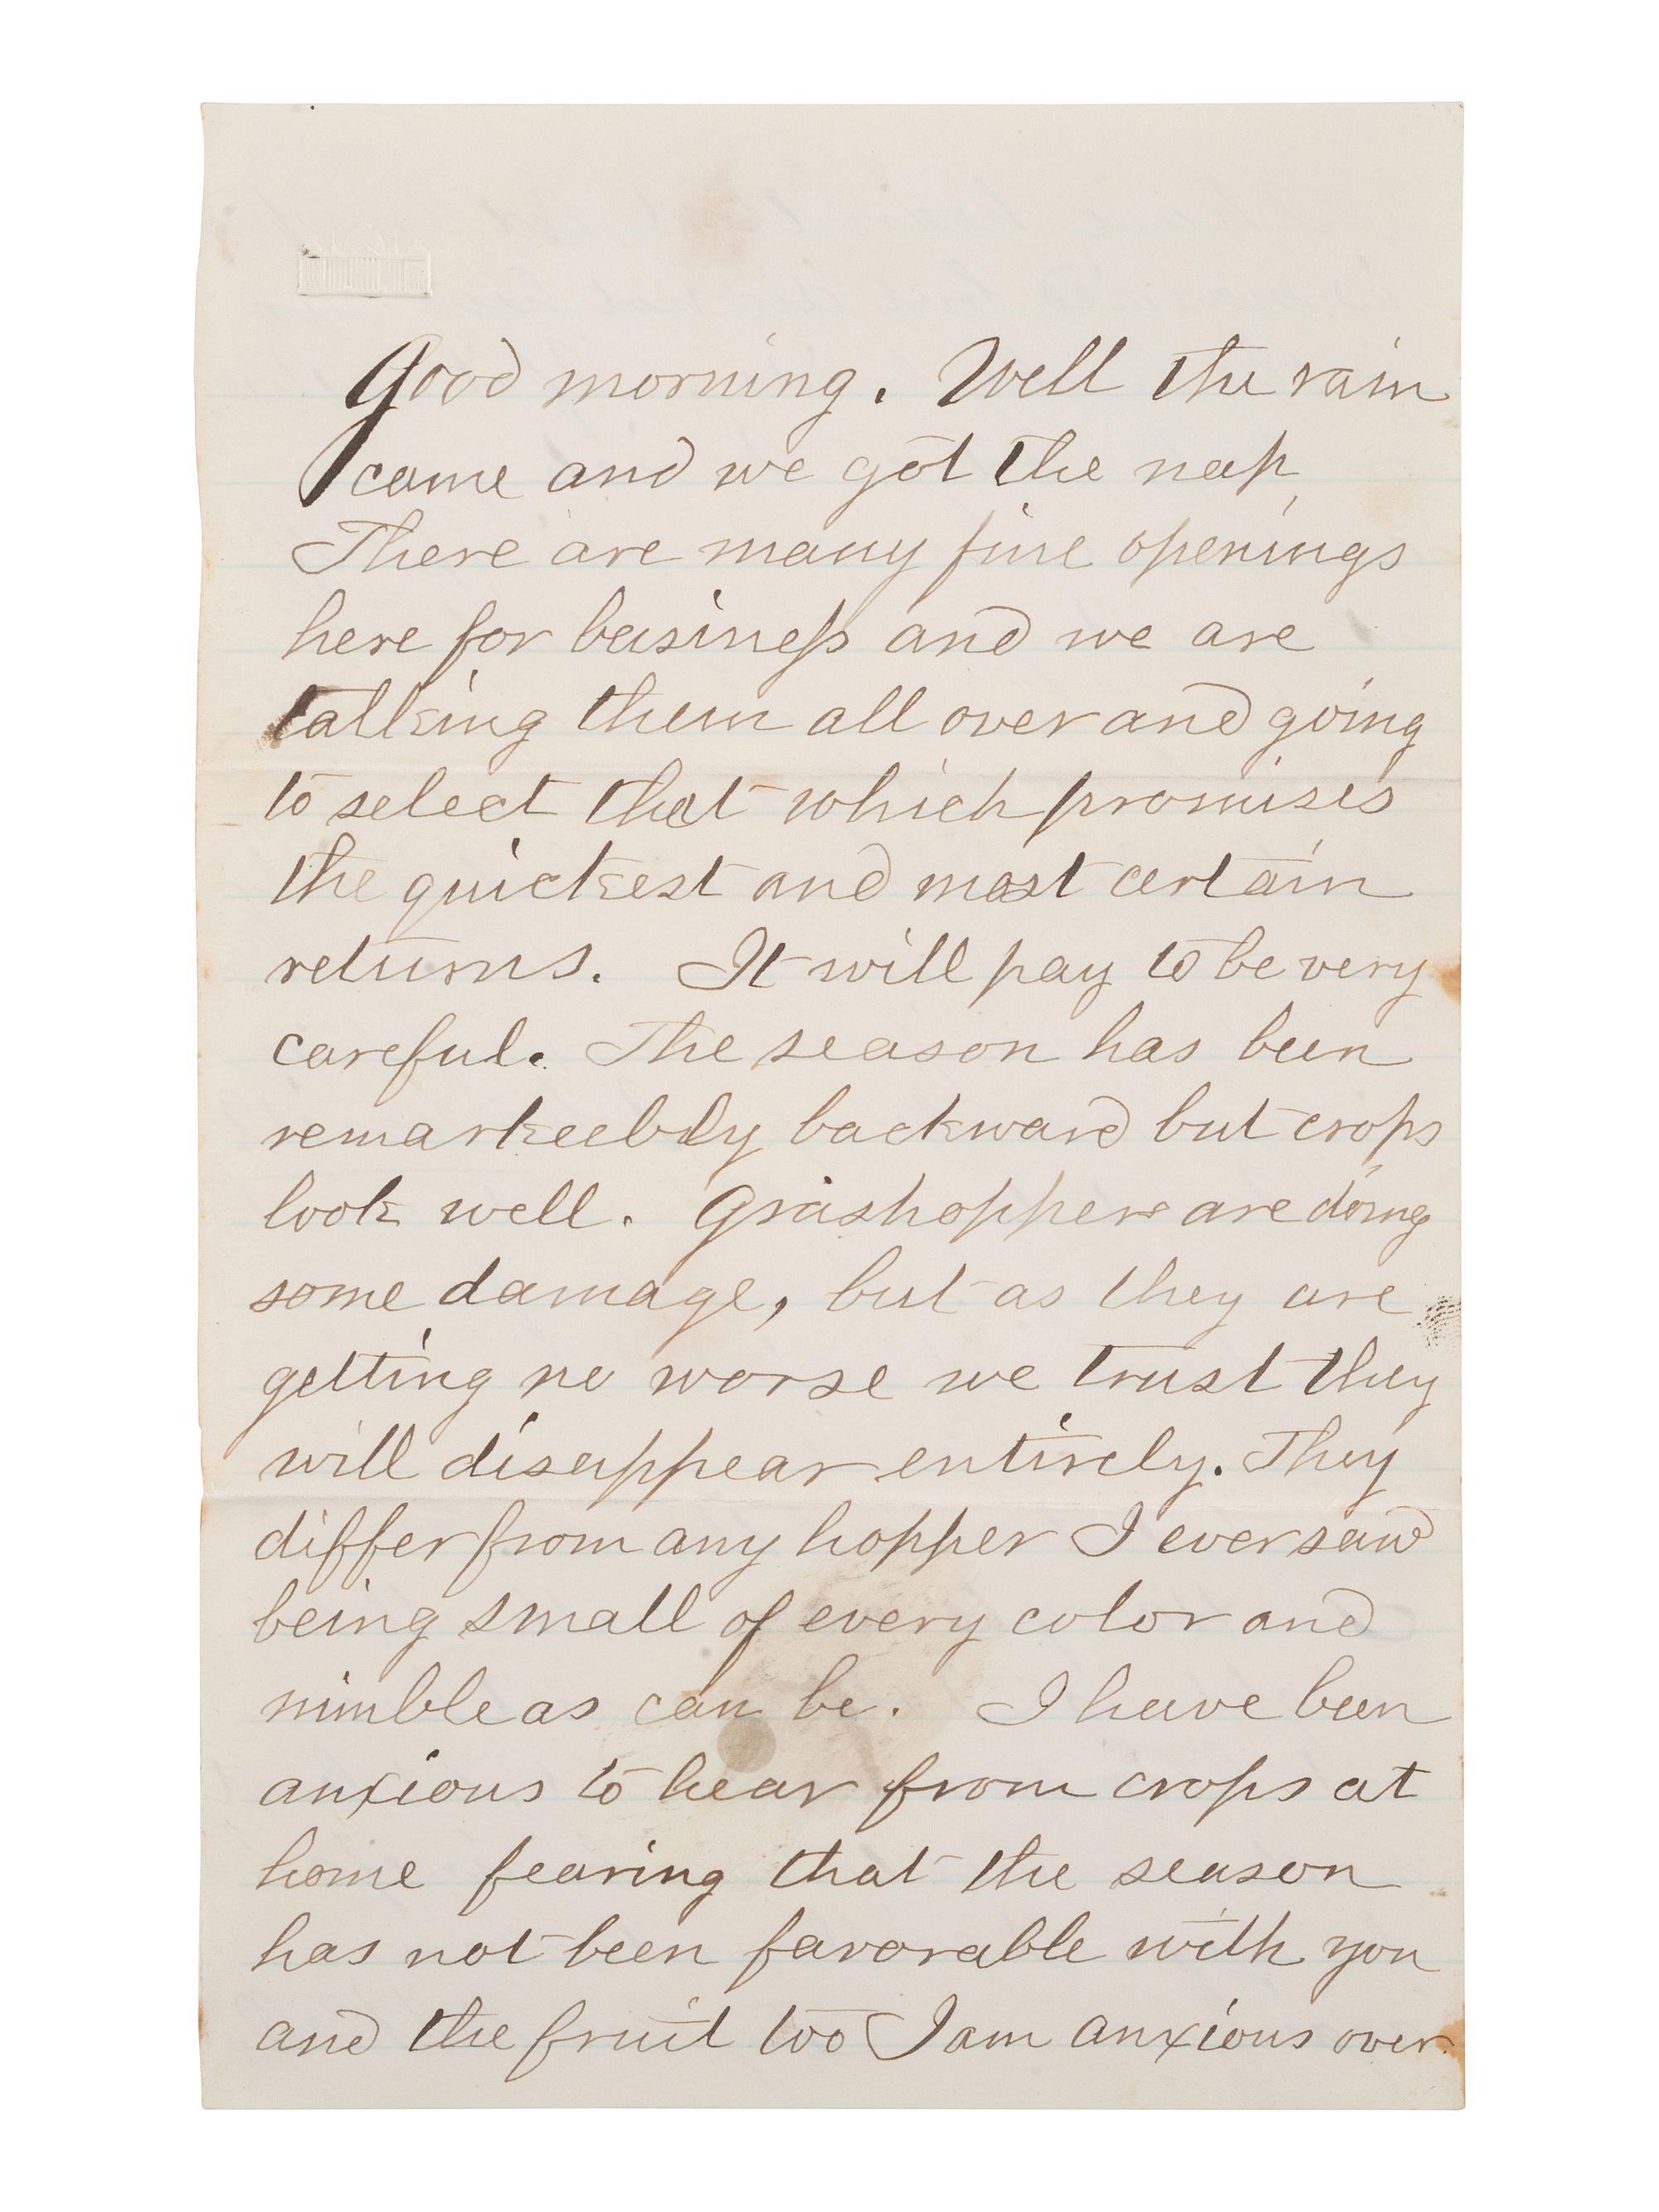 Good morning. Well the rain
came and we got the nap
There are many fine openings
here for business and we are
talking them all over and going
to select that which promises
the quickest and most certain
returns. It will pay to be very
careful. The season has been
remarkeebly backward but crops
look well. Grashoppers are doing
some damage, but as they are
getting no worse we trust they
will disappear entirely. They
differ from any hopper I ever saw
being small of every color and
nimble as can be. I have been
anxious to hear from crops at
home fearing that the season
has not been favorable with you
and the fruit too I am anxious over.